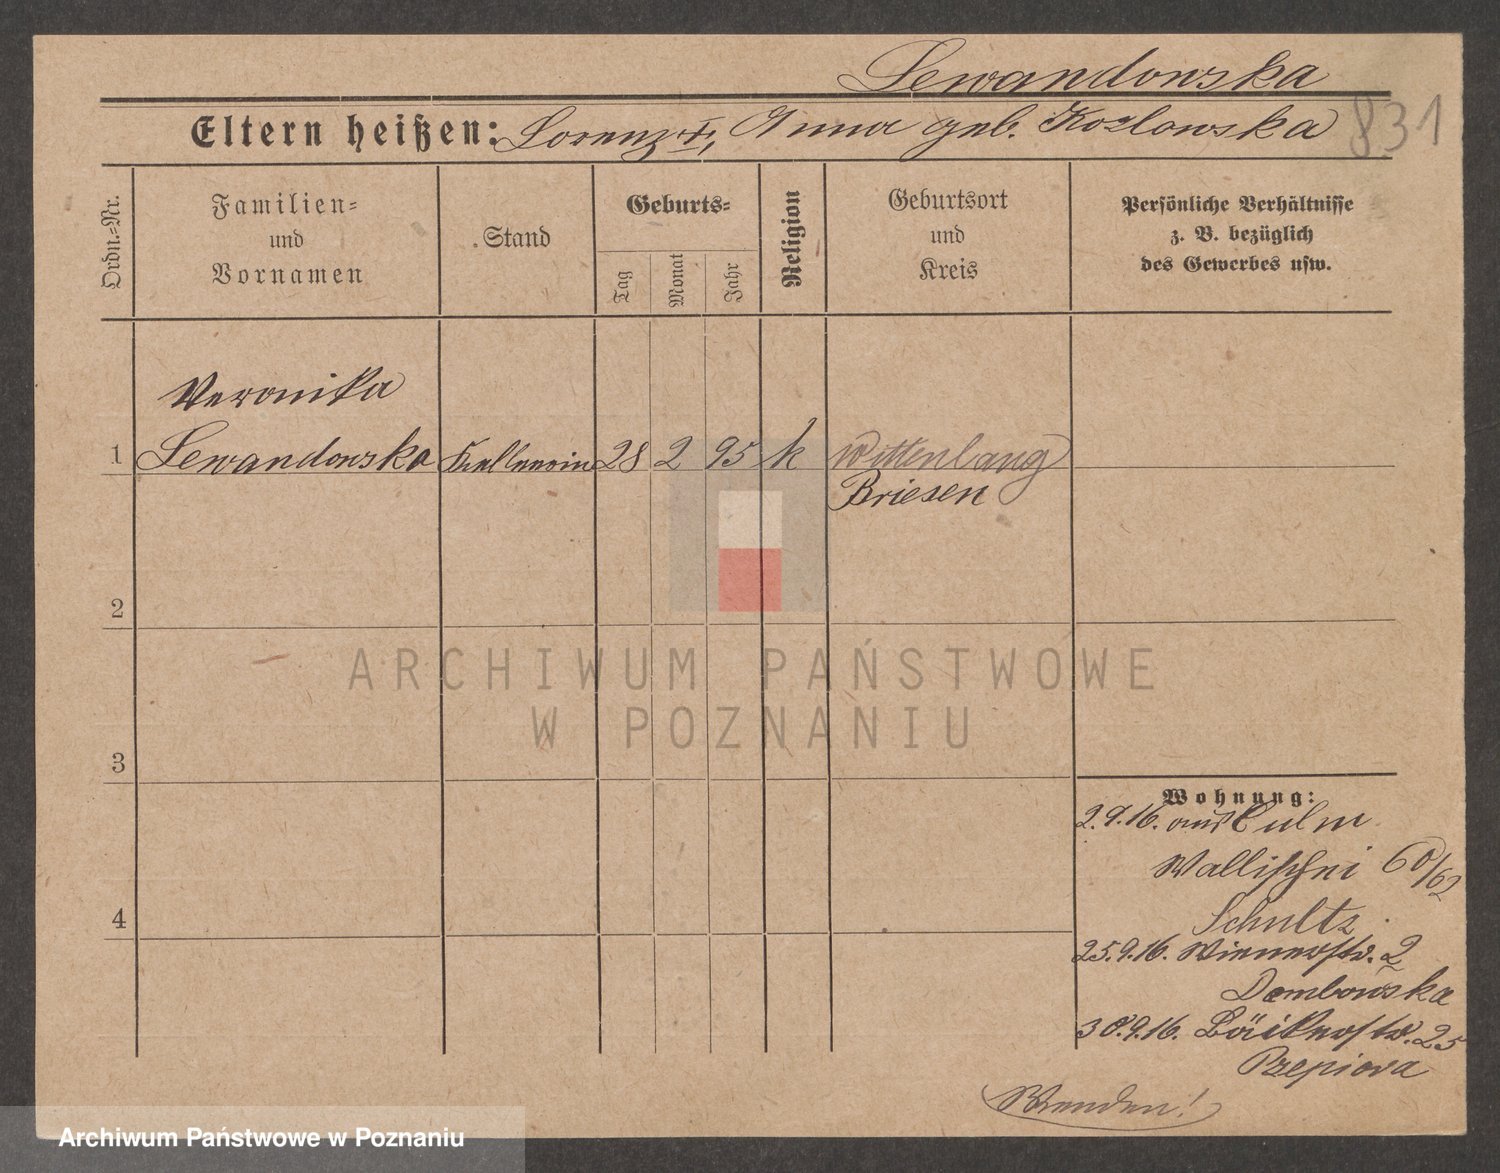 Lewandowska
Eltern heißen: Lorenz †, Anna geb. Kozlowska
831
Ordn.=Nr.
Familien=
und
Vornamen
Stand
Geburts=
Tag
Monat
Jahr
Religion
Geburtsort
und
Kreis
Persönliche Verhältnisse
z. B. bezüglich
des Gewerbes usw.
Veronika
1 Lewandowska Kellnerin 28 2 95 k Wittenlang
Briesen
2
3
4
ARCHIWUM PAŃSTWOWE
W POZNANIU
Wohnung:
2.9.16. aus Culm
Wallischei 60/62
Schultz
25.9.16. Wienerstr. 2
Dembowska
30.9.16. Bäckerstr. 25
Przepiora
Wenden!
Archiwum Państwowe w Poznaniu